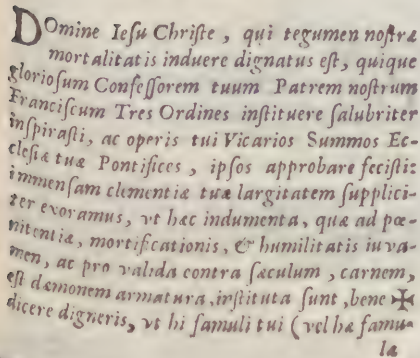 DOmine Ieſu Chriſte, qui tegumen noſtræ
mortalitatis induere dignatus eſt, quique
glorioſum Confeſſorem tuum Patrem noſtrum
Franciſcum Tres Ordines inſtituere ſalubriter
inſpiraſti, ac operis tui Vicarios Summos Ec-
cleſiæ tuæ Pontifices, ipſos approbare feciſti:
immenſam clementiæ tuæ largitatem ſupplici-
ter exoramus, vt hæc indumenta, quæ ad pœ-
nitentiæ, mortificationis, & humilitatis iuva-
men, ac pro valida contra ſæculum, carnem,
eſt dæmonem armatura, inſtituta ſunt, bene ✠
dicere digneris, vt hi famuli tui (vel hæ famu-
læ